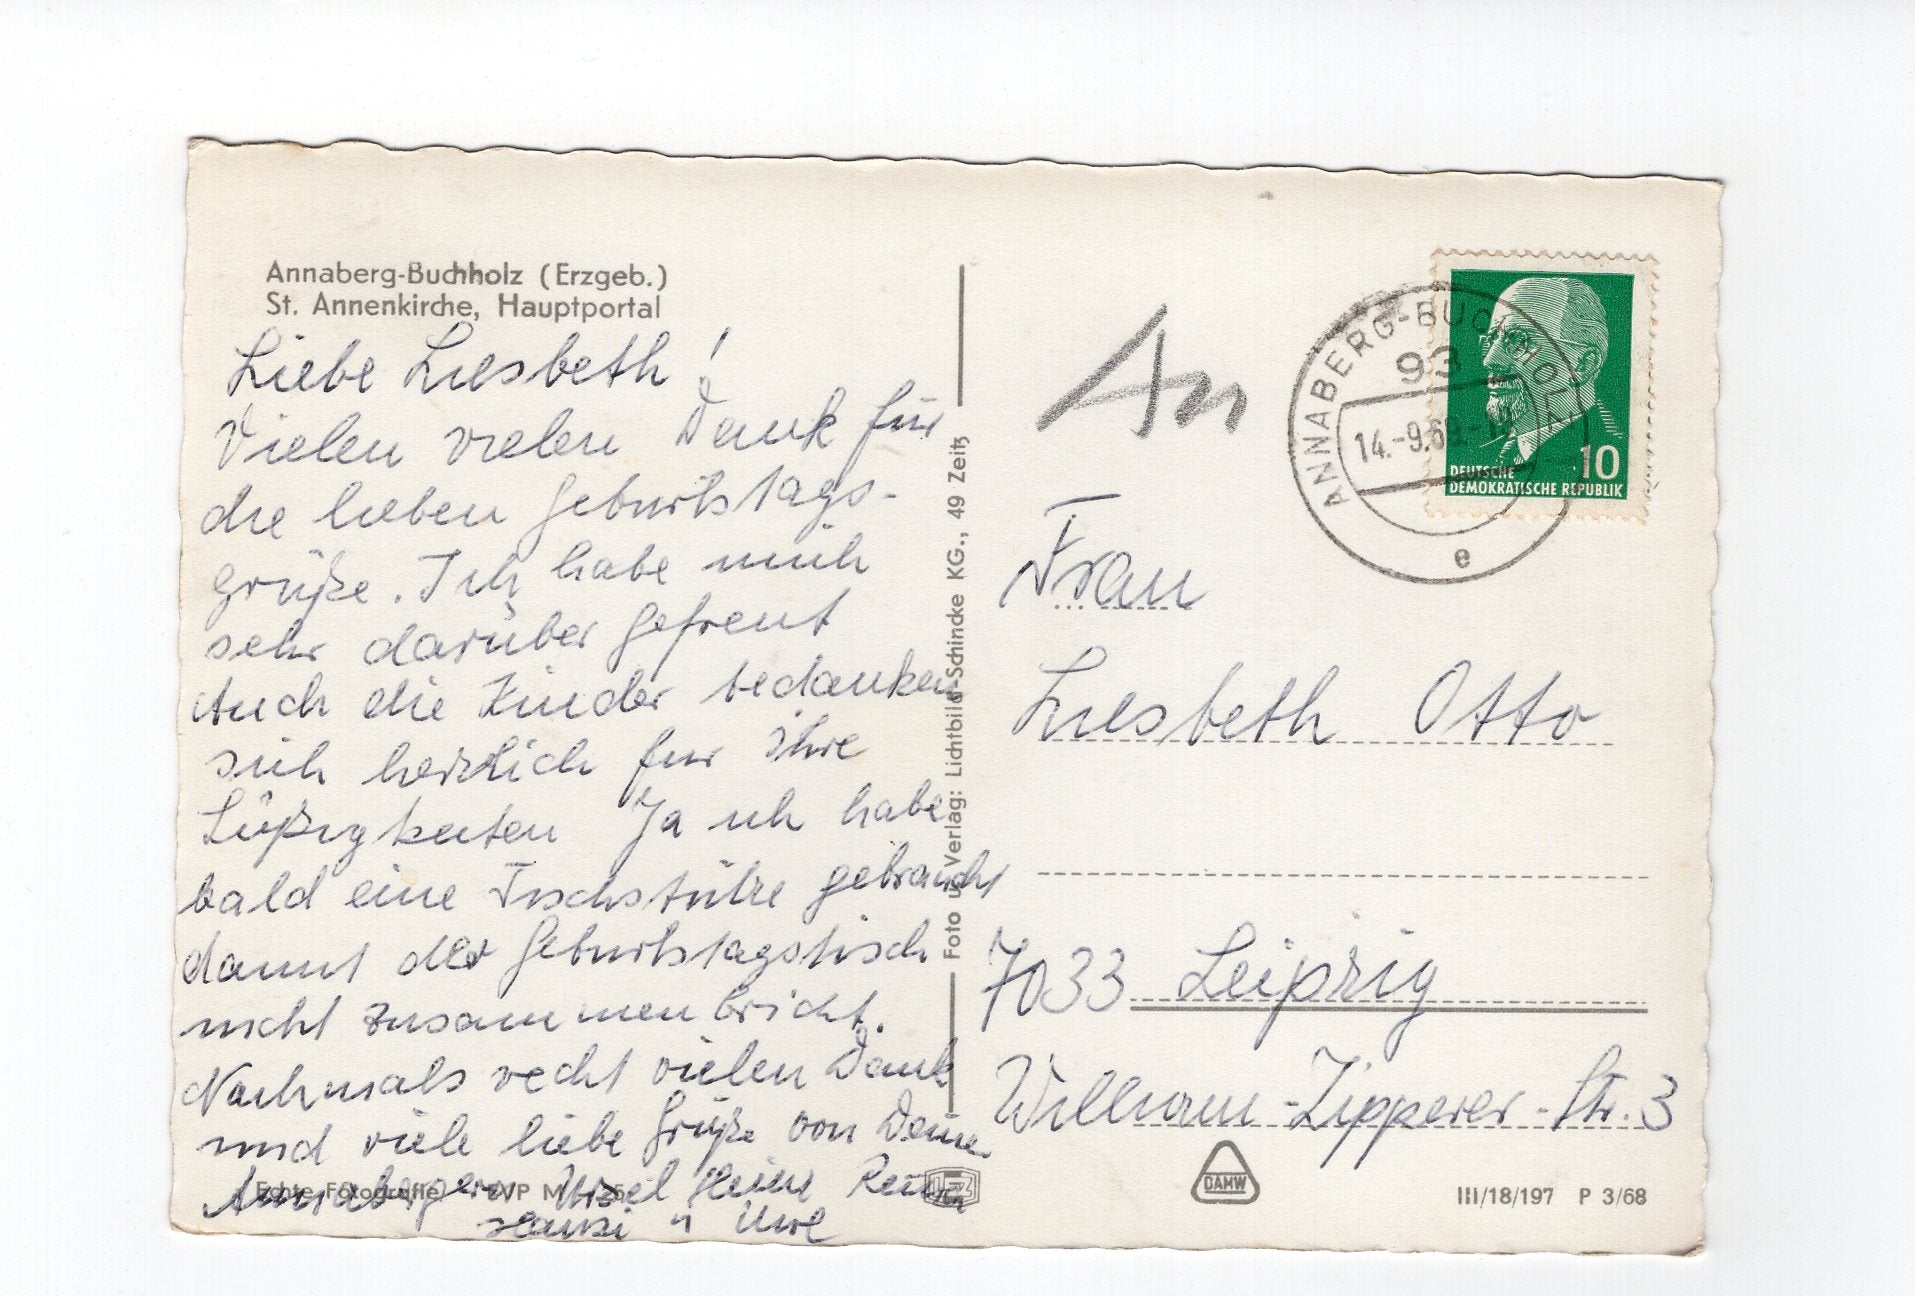 Annaberg-Buchholz (Erzgeb.)
St. Annenkirche, Hauptportal
Liebe Liesbeth!
Vielen vielen Dank für
die lieben Geburtstags-
grüße. Ich habe mich
sehr darüber gefreut
Auch die Kinder bedanken
sich herzlich für Ihre
Süßigkeiten Ja ich habe
bald eine Tischstütze gebraucht
damit der Geburtstagstisch
nicht zusammenbricht.
Nochmals recht vielen Dank
und viele liebe Grüße von Deinen
Annabergern Ursel Heinz
u Uwe
Echte Fotografie
Foto u. Verlag: Lichtbild Schincke KG., 49 Zeitz
An
Frau
Liesbeth Otto
7033 Leipzig
William-Zipperer-Str. 3
ANNABERG-BUCHHOLZ
93
14.-9.69.-
e
10
DEUTSCHE
DEMOKRATISCHE REPUBLIK
DAMW
III/18/197 P 3/68